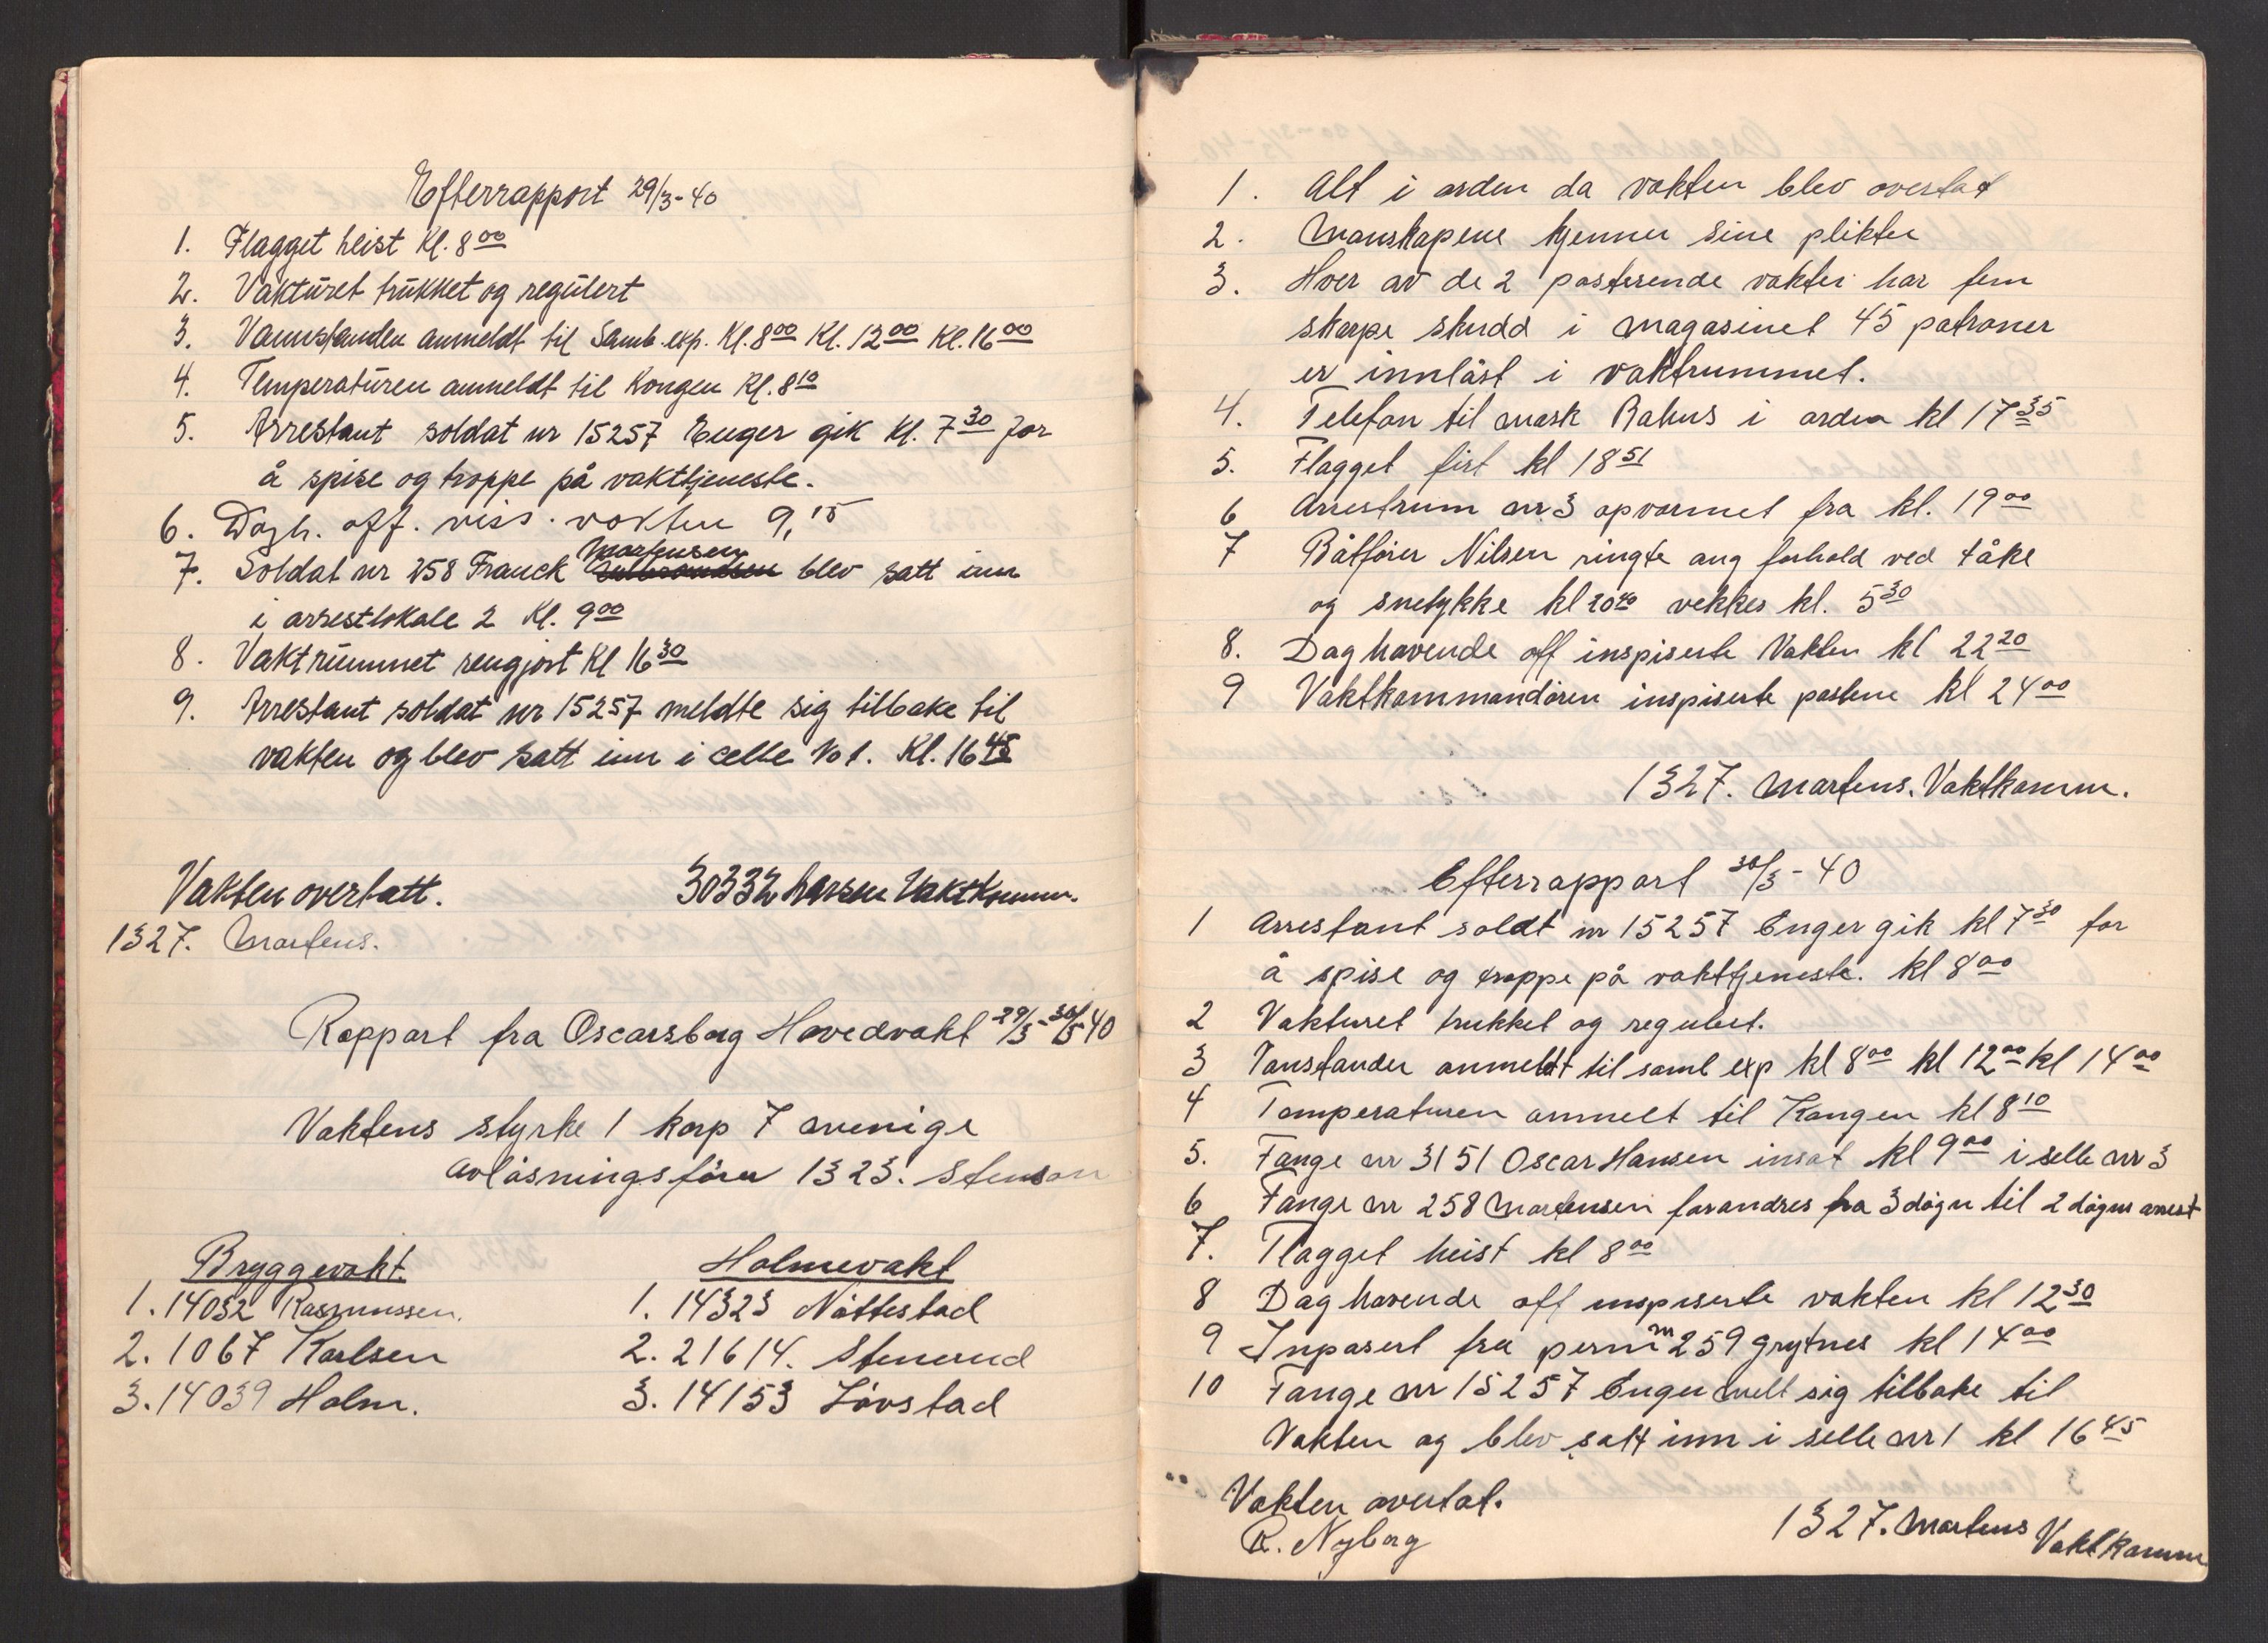 Efterrapport 29/3-40
1. Flagget heist Kl. 8 00
2. Vakturet trukket og regulert
3. Vannstanden anmeldt til Samb. exp. Kl. 8 00 Kl. 12 00 Kl. 16 00
4. Temperaturen anmeldt til Kongen Kl. 8 10
5. Arrestant soldat nr 15257 Enger gik Kl. 7 30 for
å spise og troppe på vakttjeneste.
6. Dagh. off. viss. vakten 9,15
Martensen
7. Soldat nr 258 Franck blev satt inn
i arrestlokale 2 Kl. 9 00
8. Vaktrummet rengjort Kl 16 30
9. Arrestant soldat nr 15257 meldte sig tilbake til
vakten og blev satt inn i celle No 1. Kl. 16 45
Vakten overtatt. 30332 Larsen Vaktkomm.
1327. Martens.
Rapport fra Oscarsborg Hovedvakt 29/3-30/3 40
Vaktens styrke 1 korp 7 menige
Avløsningsfører 1323. Stenson
Bryggevakt. Holmevakt
1. 14032 Rasmussen. 1. 14323 Nøttestad
2. 1067 Karlsen 2. 21614. Stenerud
3. 14039 Holm. 3. 14153 Løvstad
1. Alt i orden da vakten blev overtat
2. Manskapene kjenner sine plikter
3. Hver av de 2 posterende vakter har fem
skarpe skudd i magasinet 45 patroner
er innlåst i vaktrummet.
4. Telefon til mask Rahus i orden kl 17 35
5. Flagget firt kl 18 51
6 Arrestrum nr 3 opvarmet fra kl. 19 00
7 Båtfører Nilsen ringte ang forhold ved tåke
og snetykke kl 20 40 vekkes kl. 5 30
8. Daghavende off inspiserte Vakten kl 22 20
9 Vaktkommandøren inspiserte postene kl 24 00
1327. Martens. Vaktkomm.
Efterrapport 30/3-40
1 Arrestant soldt nr 15257 Enger gik kl 7 30 for
å spise og troppe på vakttjeneste. kl 8 00
2 Vakturet trukket og regulert.
3 Vanstanden anmeldt til samb exp kl 8 00 kl 12 00 kl 14 00
4 Temperaturen anmelt til Kongen kl 8 10
5. Fange nr 3151 Oscar Hansen insat kl 9 00 i selle nr 3
6 Fange nr 258 Martensen forandres fra 3 døgn til 2 døgns arrest
7. Flagget heist kl 8 00
8 Daghavende off inspiserte vakten kl 12 30
9 Inpasert fra perm nr 259 Grytnes kl 14 00
10 Fange nr 15257 Enger melt sig tilbake til
Vakten og blev satt inn i selle nr 1 kl 16 45
Vakten overtat.
R. Nyborg
1327. Martens Vaktkomm